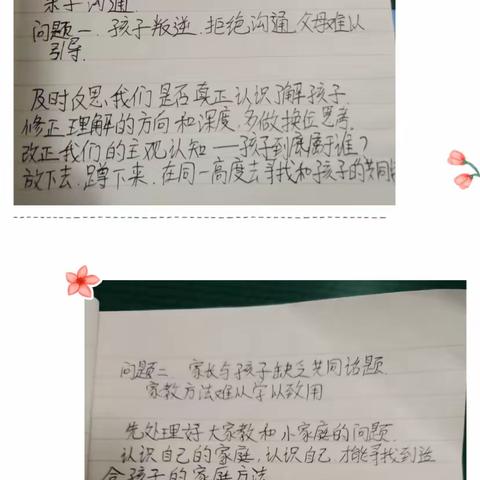 亲子沟通
问题一. 孩子叛逆. 拒绝沟通. 父母难以
引导.
及时反思, 我们是否真正认识了解孩子.
修正理解的方向和深度, 多做换位思考.
改正我们的主观认知——孩子到底属于谁?
放下去. 蹲下来. 在同一高度去寻找和孩子的共同
问题二. 家长与孩子缺乏共同话题.
家教方法难以学以致用
先处理好大家教和小家庭的问题.
认识自己的家庭, 认识自己. 才能寻找到适
合孩子的家庭方法